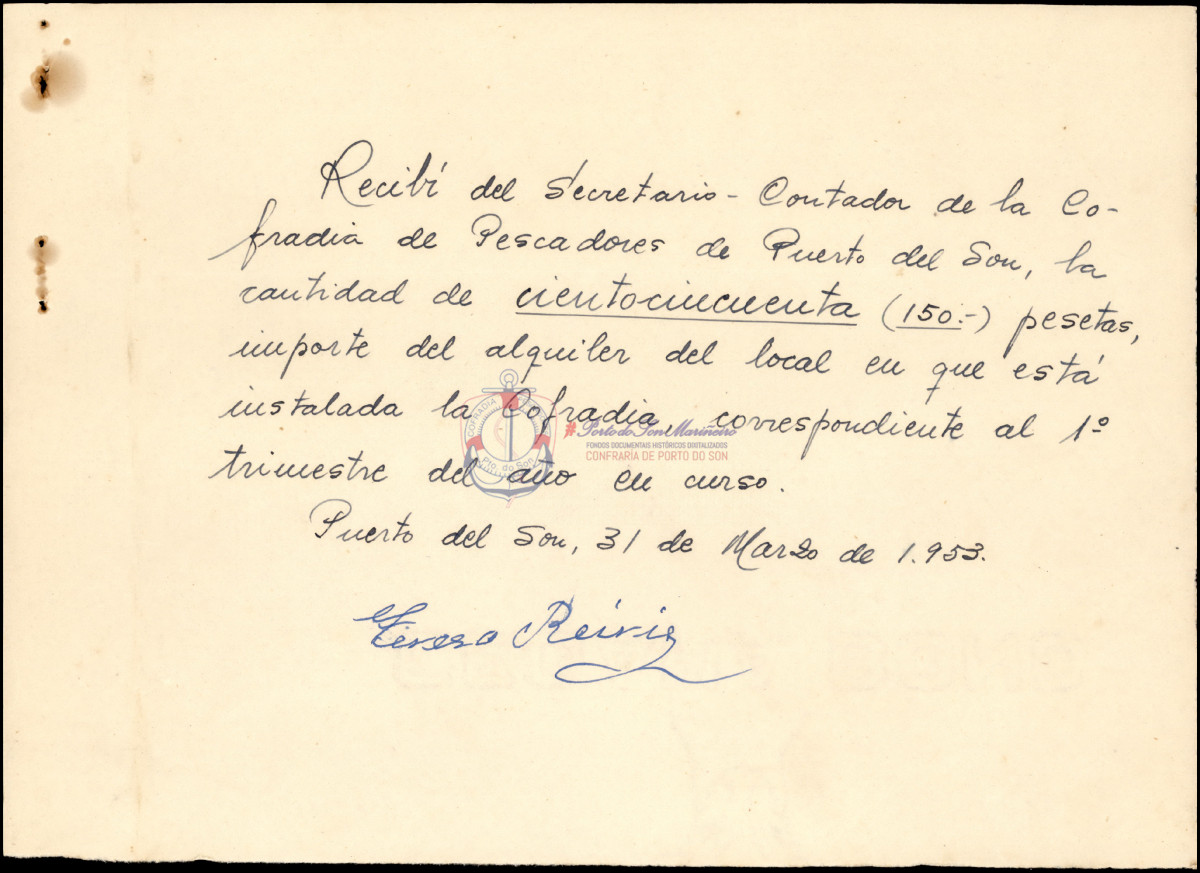 Recibí del Secretario-Contador de la Co-
fradia de Pescadores de Puerto del Son, la
cantidad de cientocincuenta (150.-) pesetas,
importe del alquiler del local en que está
instalada la Cofradia, correspondiente al 1º
trimestre del año en curso.
Puerto del Son, 31 de Marzo de 1.953.
Teresa Reiriz
COFRADIA
Pto. do Son
#Porto do Son Mariñeiro
FONDOS DOCUMENTAIS HISTÓRICOS DIXITALIZADOS
CONFRARÍA DE PORTO DO SON